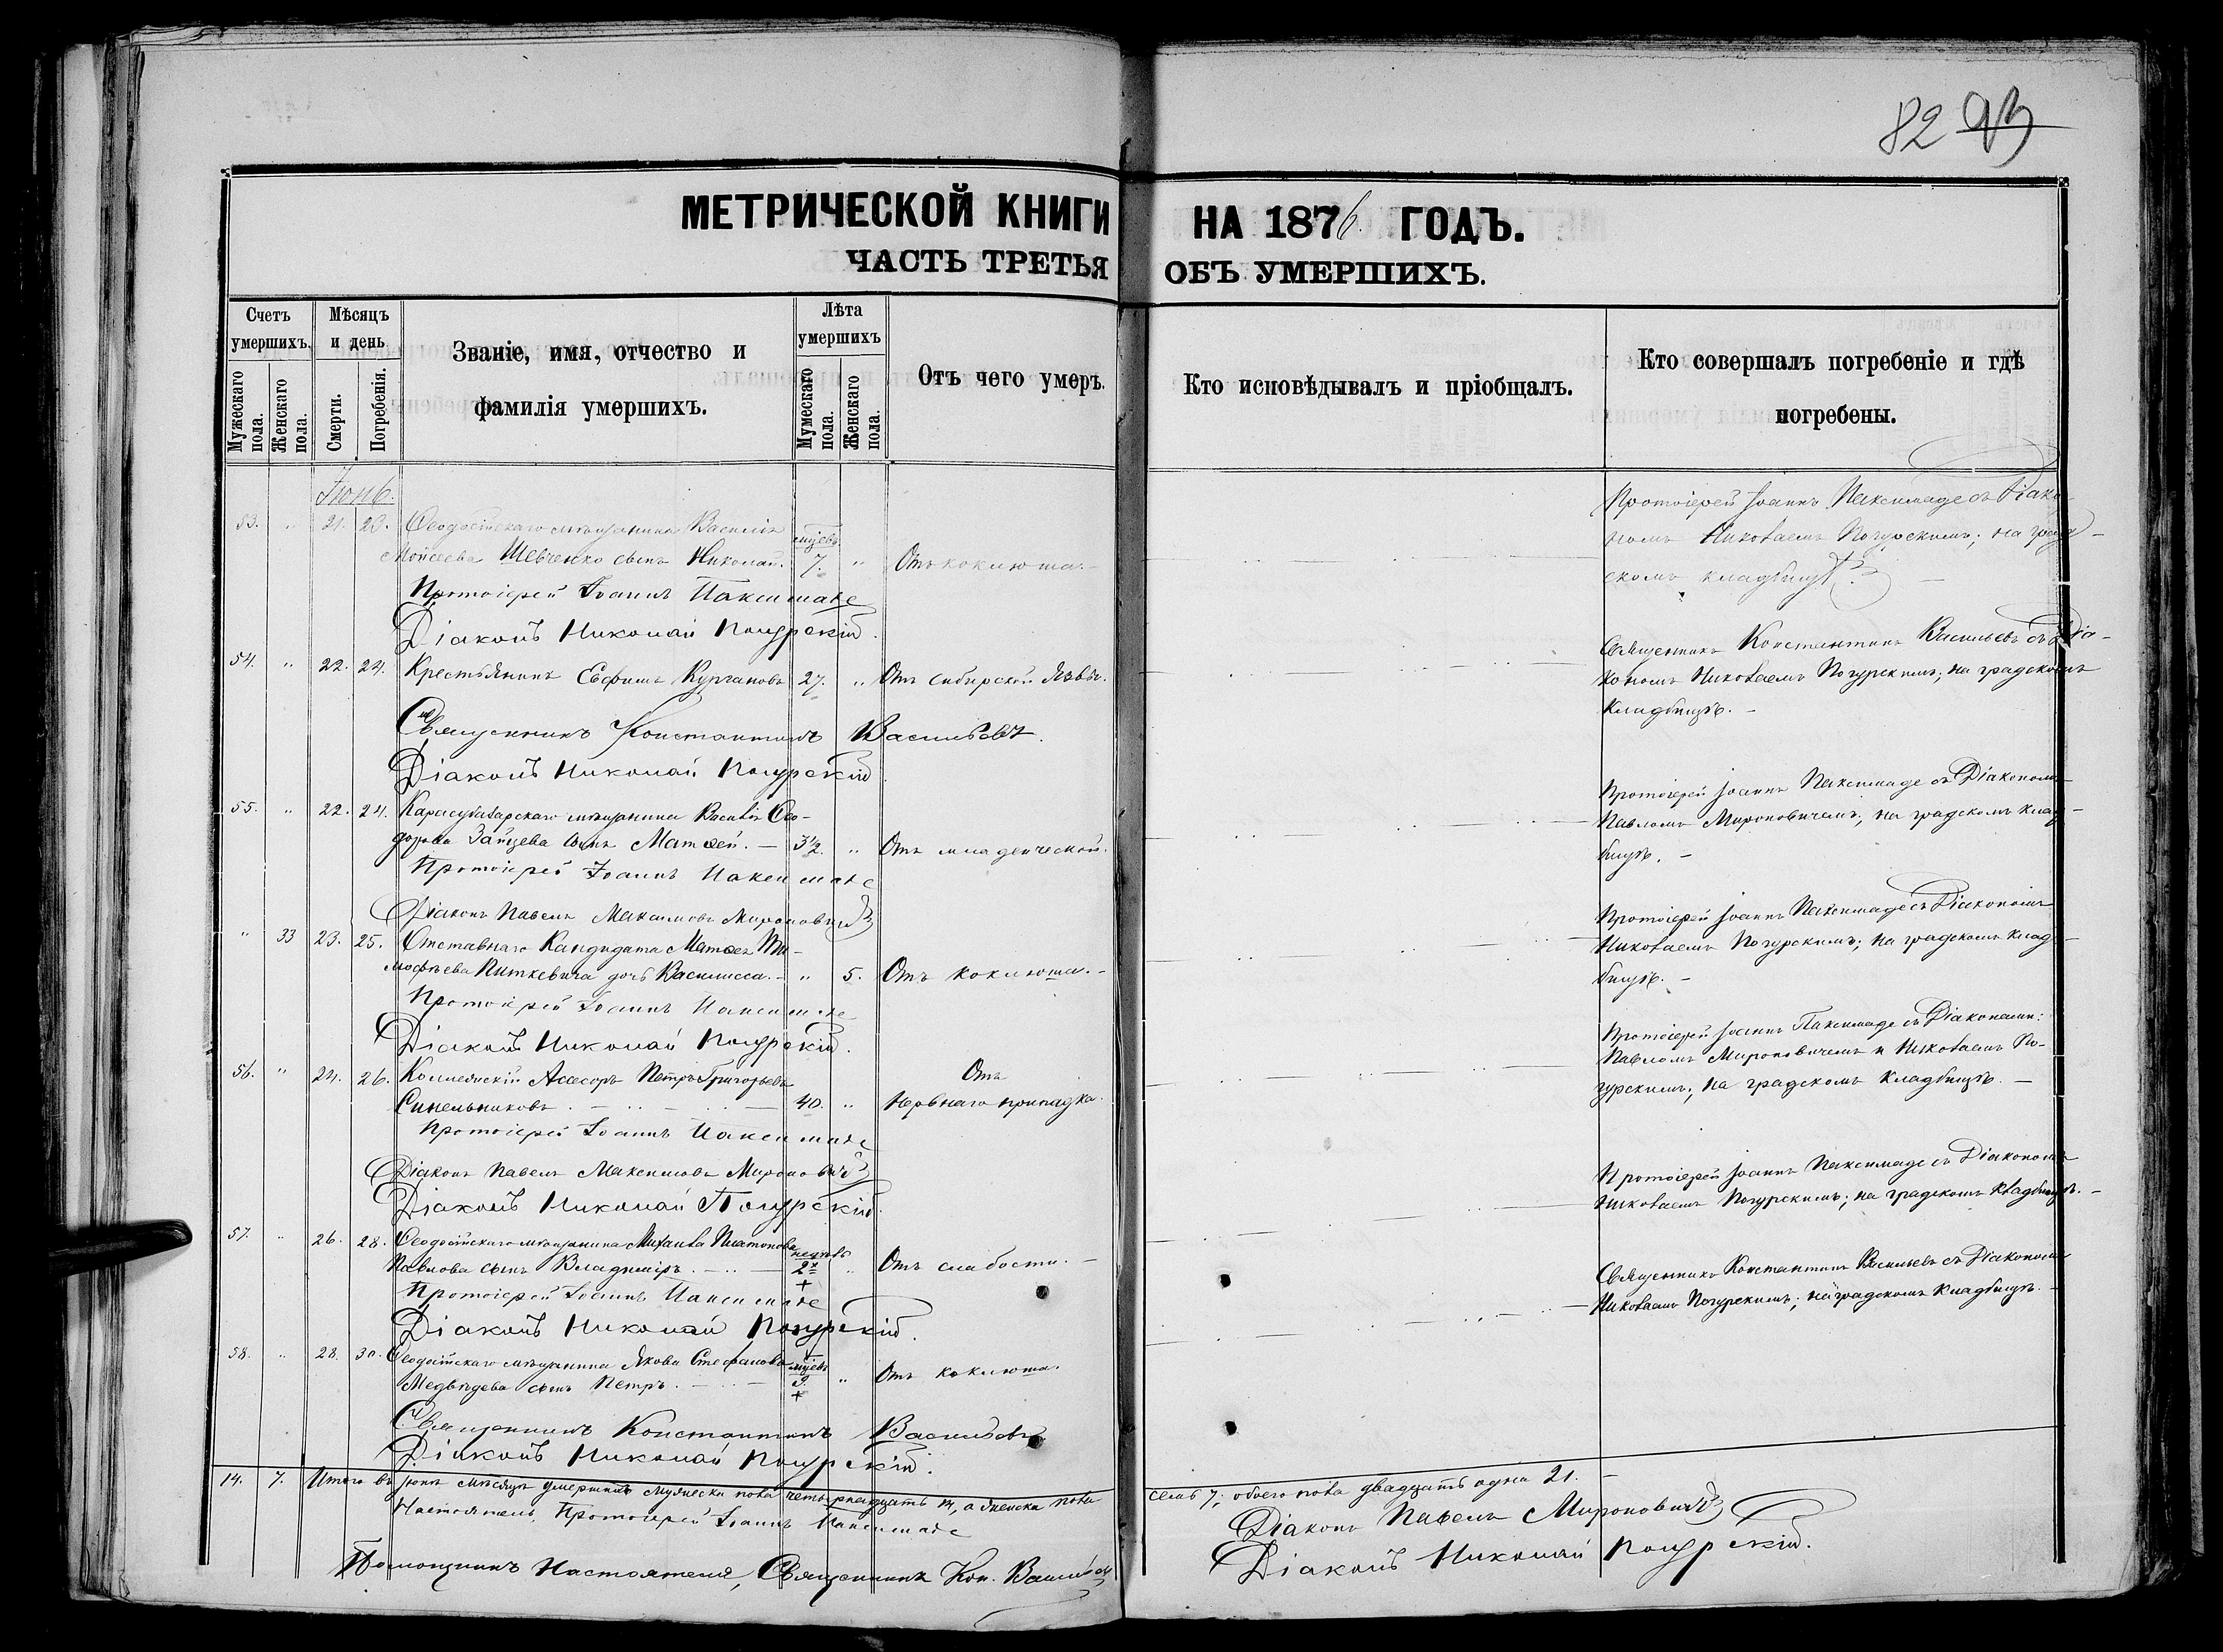 82 93
МЕТРИЧЕСКОЙ КНИГИ НА 1876 ГОДЪ.
ЧАСТЬ ТРЕТЬЯ ОБЪ УМЕРШИХЪ.
Счетъ умершихъ.
Мужескаго пола.
Женскаго пола.
Мѣсяцъ и день
Смерти.
Погребенія.
Званіе, имя, отчество и
фамилія умершихъ.
Лѣта умершихъ
Мужескаго пола.
Женскаго пола.
Отъ чего умеръ.
Кто исповѣдывалъ и пріобщалъ.
Кто совершалъ погребеніе и гдѣ
погребены.
Іюнь.
53. " 21. 23. Ѳеодосійскаго мѣщанина Василія мѣсяц.
Моисеева Шевченко сынъ Николай. 7. " Отъ коклюша.
Протоіерей Іоаннъ Паксимаде
Діаконъ Николай Погурскій.
Протоіерей Іоаннъ Паксимаде съ Діако-
номъ Николаемъ Погурскимъ; на град-
скомъ кладбищѣ.
54. " 22. 24. Крестьянинъ Евфимъ Кургановъ 27. " Отъ сибирской язвы.
Священникъ Константинъ Васильевъ.
Діаконъ Николай Погурскій
Священникъ Константинъ Васильевъ съ Діа-
кономъ Николаемъ Погурскимъ; на градскомъ
кладбищѣ. -
55. " 22. 24. Карасубазарскаго мѣщанина Василія Ѳео-
дорова Зайцева сынъ Матѳей. — 3½. " Отъ младенческой.
Протоіерей Іоаннъ Паксимаде
Діаконъ Павелъ Максимовъ Мироновичъ
Протоіерей Іоаннъ Паксимаде съ Діакономъ
Павломъ Мироновичемъ; на градскомъ клад-
бищѣ. -
" 33 23. 25. Отставнаго Кандидата Матѳея Ти-
моѳѣева Питкевича дочь Василисса. - " 5. Отъ коклюша. -
Протоіерей Іоаннъ Паксимаде
Діаконъ Николай Погурскій.
Протоіерей Іоаннъ Паксимаде съ Діакономъ
Николаемъ Погурскимъ; на градскомъ клад-
бищѣ. -
56. " 24. 26. Коллежскій Асесоръ Петръ Григорьевъ Отъ
Синельниковъ. 40. " нервнаго припадка.
Протоіерей Іоаннъ Паксимаде
Діаконъ Павелъ Максимовъ Мироновичъ
Діаконъ Николай Погурскій.
Протоіерей Іоаннъ Паксимаде съ Діаконами:
Павломъ Мироновичемъ и Николаемъ По-
гурскимъ; на градскомъ кладбищѣ. —
57. " 26. 28. Ѳеодосійскаго мѣщанина Михаила Платонова недѣль
Павлова сынъ Владиміръ. 2 " Отъ слабости. -
Протоіерей Іоаннъ Паксимаде
Діаконъ Николай Погурскій.
Протоіерей Іоаннъ Паксимаде съ Діакономъ
Николаемъ Погурскимъ; на градскомъ кладбищѣ. -
58. " 28. 30. Ѳеодосійскаго мѣщанина Якова Стефанова
Медвѣдева сынъ Петръ. 9. " Отъ коклюша.
Священникъ Константинъ Васильевъ
Діаконъ Николай Погурскій.
Священникъ Константинъ Васильевъ съ Діакономъ
Николаемъ Погурскимъ; на градскомъ кладбищѣ. -
14. 7. Итого въ Іюнѣ мѣсяцѣ умершихъ мужеска пола четырнадцать 14, а женска пола
семь 7; обоего пола двадцать одна 21. —
Настоятель, Протоіерей Іоаннъ Паксимаде
Помощникъ Настоятеля, Священникъ Кон. Васильевъ
Діаконъ Павелъ Мироновичъ
Діаконъ Николай Погурскій.